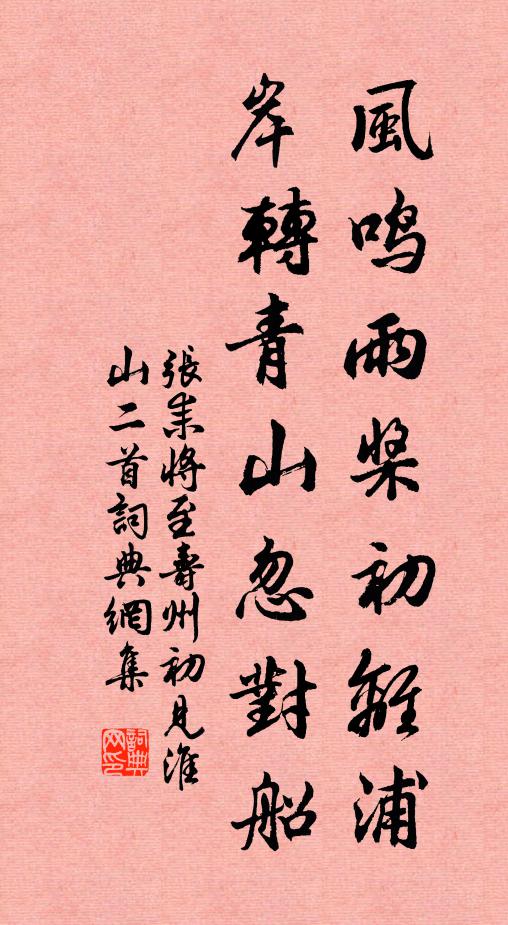 風鳴雨槳初離浦
岸轉青山忽對船
張耒將至壽州初見淮
山二首詞典網集
詞典
网印